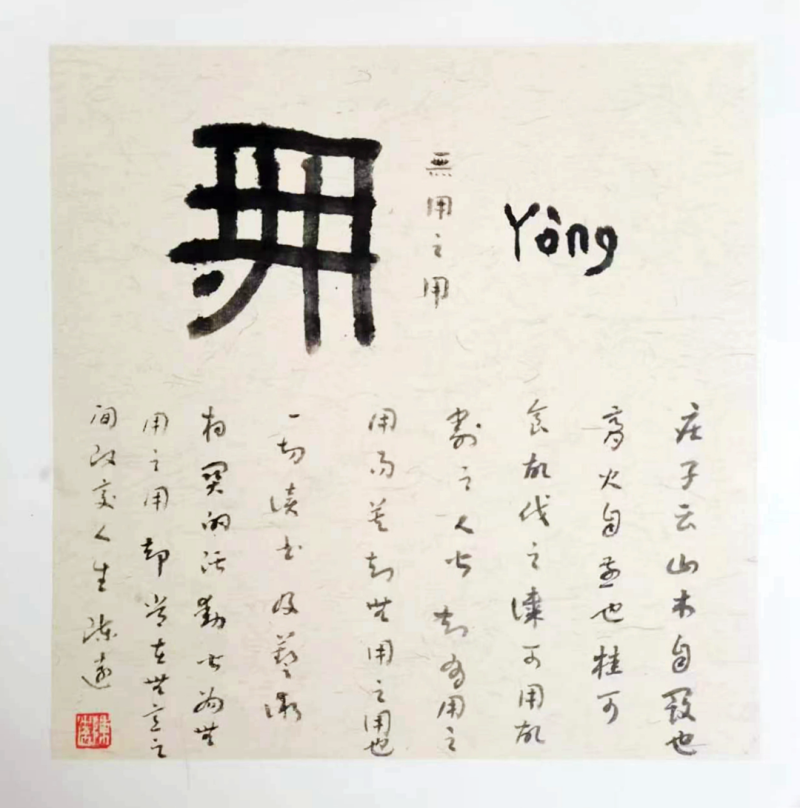 用
無用之用
Yòng
庄子云山木自寇也
膏火自煎也桂可
食故伐之漆可用故
割之人皆知有用之
用而莫知無用之用也
一切读书及藝術
相関的活動皆為無
用之用却常在無言之
间改变人生陈远